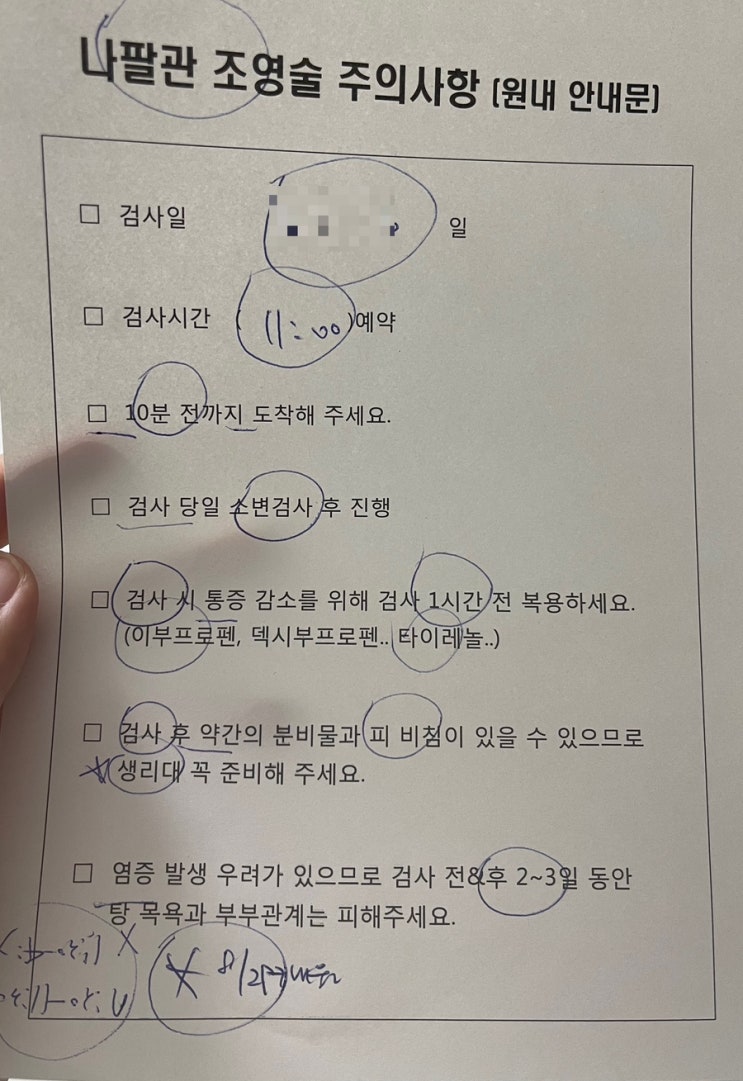 나팔관 조영술 주의사항 (원내 안내문)
□ 검사일 일
□ 검사시간 ( 11:00 )예약
□ 10분 전까지 도착해 주세요.
□ 검사 당일 소변검사 후 진행
□ 검사 시 통증 감소를 위해 검사 1시간 전 복용하세요.
(이부프로펜, 덱시부프로펜.. 타이레놀..)
□ 검사 후 약간의 분비물과 피 비침이 있을 수 있으므로
생리대 꼭 준비해 주세요.
□ 염증 발생 우려가 있으므로 검사 전&후 2~3일 동안
탕 목욕과 부부관계는 피해주세요.